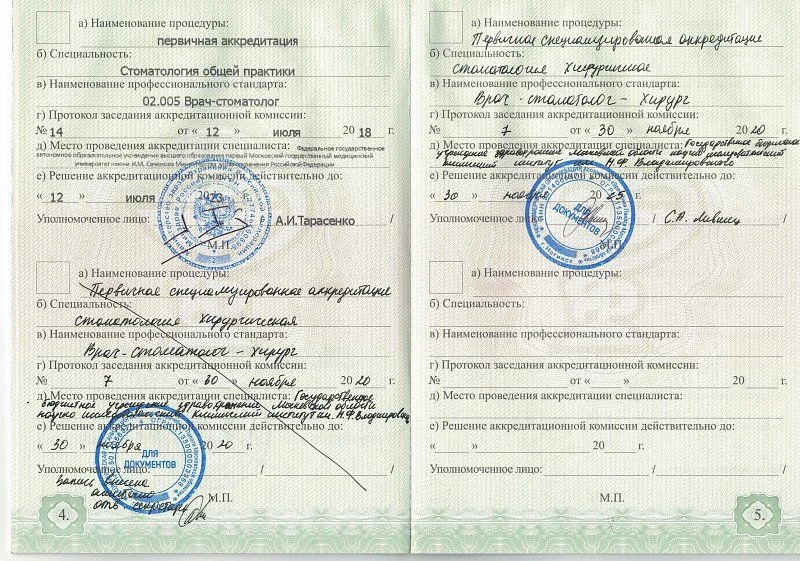 а) Наименование процедуры:
первичная аккредитация
б) Специальность:
Стоматология общей практики
в) Наименование профессионального стандарта:
02.005 Врач-стоматолог
г) Протокол заседания аккредитационной комиссии:
№ 14 от « 12 » июля 20 18 г.
д) Место проведения аккредитации специалиста: Федеральное государственное
автономное образовательное учреждение высшего образования первый Московский государственный медицинский
университет имени И.М. Сеченова Министерства здравоохранения Российской Федерации
е) Решение аккредитационной комиссии действительно до:
« 12 » июля 2023 г.
Уполномоченное лицо: А.И.Тарасенко /
М.П.
а) Наименование процедуры:
Первичная специализированное аккредитация
б) Специальность:
стоматология хирургическая
в) Наименование профессионального стандарта:
Врач-стоматолог - хирург
г) Протокол заседания аккредитационной комиссии:
№ 7 от « 30 » ноября 20 20 г.
д) Место проведения аккредитации специалиста: Государственное
бюджетное учреждение здравоохранения Московской области
научно исследовательский клинический институт им. М.Ф. Владимирского
е) Решение аккредитационной комиссии действительно до:
« 30 » ноября 20 20 г.
ДЛЯ
ДОКУМЕНТОВ
Уполномоченное лицо: / /
Запись внесена
ошибочно
отв. секретарь
М.П.
4.
а) Наименование процедуры:
Первичная специализированная аккредитация
б) Специальность:
стоматология хирургическая
в) Наименование профессионального стандарта:
Врач - стоматолог - хирург
г) Протокол заседания аккредитационной комиссии:
№ 7 от « 30 » ноября 20 20 г.
д) Место проведения аккредитации специалиста: Государственное бюджетное
учреждение здравоохранения Московской области
клинический институт им М.Ф. Владимирского
е) Решение аккредитационной комиссии действительно до:
« 30 » ноября 20 25 г.
ДЛЯ
ДОКУМЕНТОВ
г. Ногинск
Уполномоченное лицо: / С.А. /
М.П.
а) Наименование процедуры:
б) Специальность:
в) Наименование профессионального стандарта:
г) Протокол заседания аккредитационной комиссии:
№ от « » 20 г.
д) Место проведения аккредитации специалиста:
е) Решение аккредитационной комиссии действительно до:
« » 20 г.
Уполномоченное лицо: / /
М.П.
5.